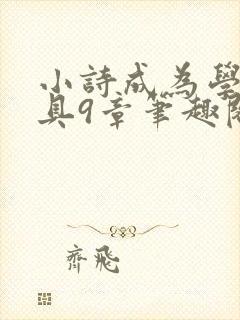 小詩成為學
具9章筆趣閣
齊飛